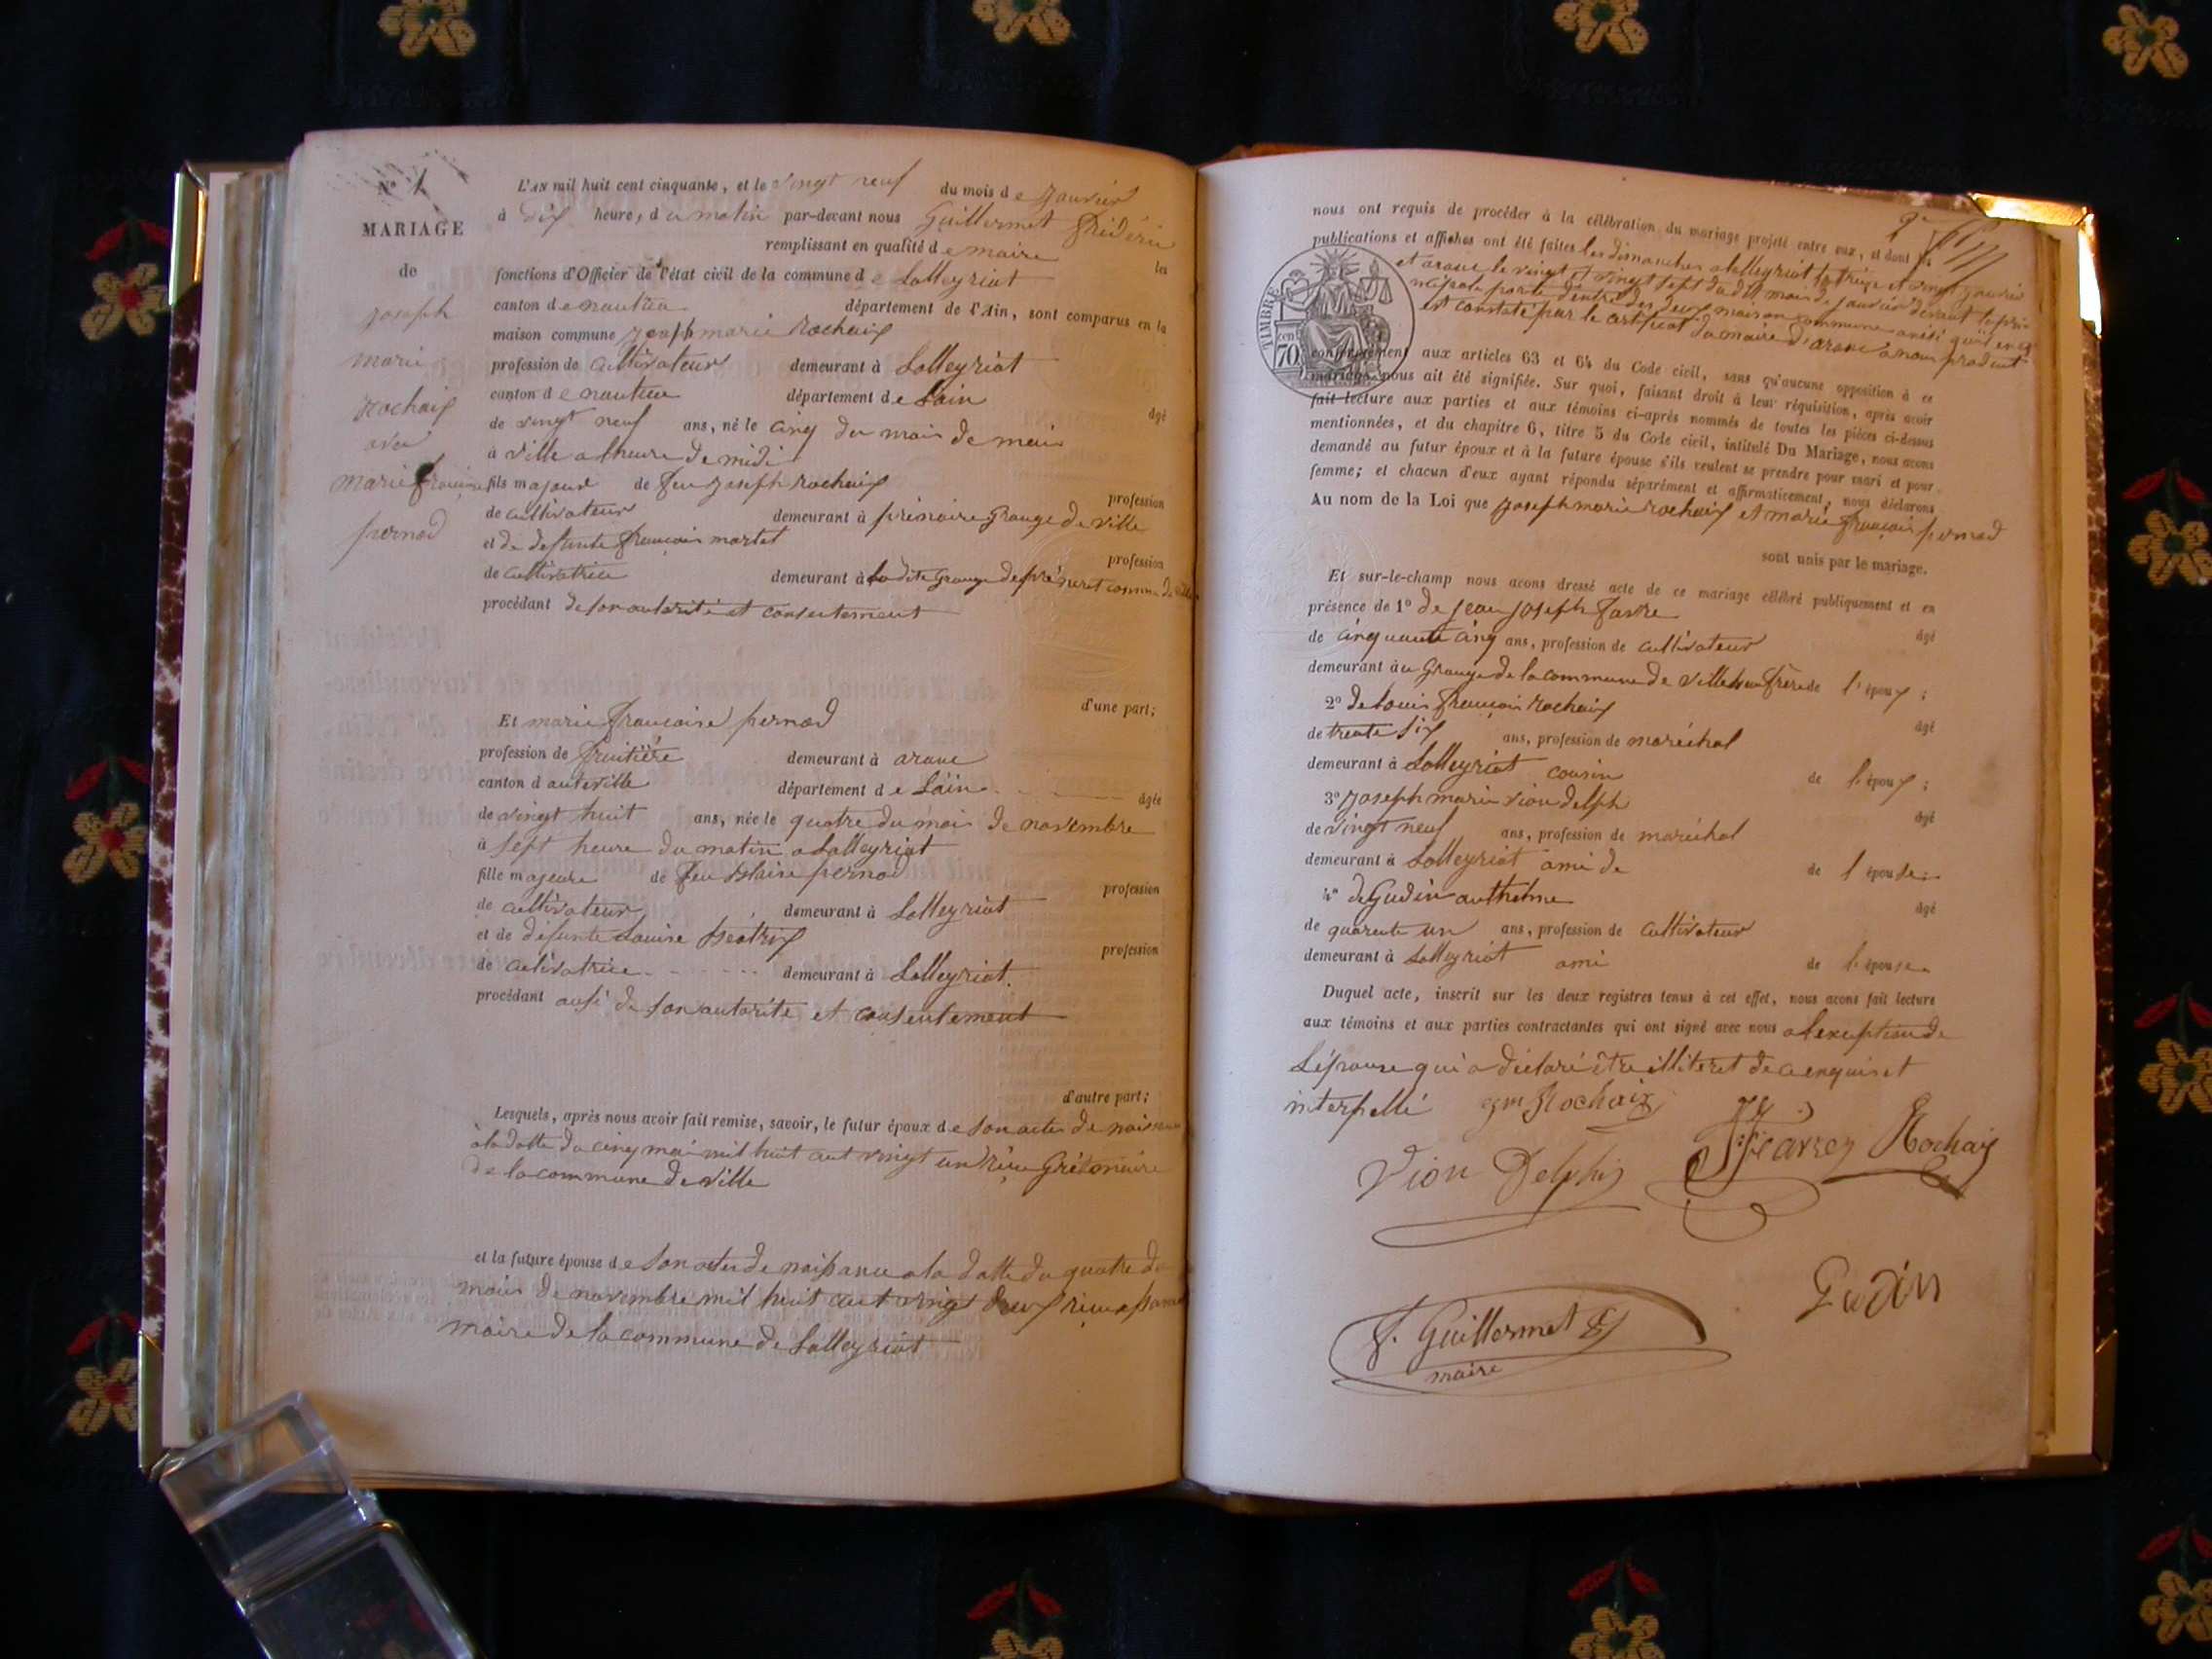 N° 1
MARIAGE
de
joseph
marie
Rochaix
avec
marie françoise
pernod
L'AN mil huit cent cinquante, et le vingt neuf du mois de janvier
à dix heure, du matin par-devant nous Guillermet frédéric
remplissant en qualité de maire les
fonctions d'Officier de l'état civil de la commune de Lalleyriat
canton de nantua département de l'Ain, sont comparus en la
maison commune joseph marie Rochaix
profession de cultivateur demeurant à Lalleyriat
canton de nantua département de Lain âgé
de vingt neuf ans, né le cinq du mois de mai
à ville a lheure de midi
fils majeur de feu joseph rochaix profession
de cultivateur demeurant à Grange de ville
et de defunte françoise martet profession
de cultivatrice demeurant à la dite Grange de
procédant de son autorité et consentement
d'une part;
Et marie françoise pernod
profession de fruitière demeurant à arane
canton d auteville département de Lain âgée
de vingt huit ans, née le quatre du mois de novembre
à sept heure du matin a Lalleyriat
fille majeure de feu Blaise pernod profession
de cultivateur demeurant à Lalleyriat
et de défunte Louise Béatrix profession
de cultivatrice demeurant à Lalleyriat.
procédant ausi de son autorité et consentement
d'autre part;
Lesquels, après nous avoir fait remise, savoir, le futur époux de son acte de naissance
à la datte du cinq mai mil huit cent vingt un
de la commune de ville
et la future épouse de son acte de naissance a la datte du quatre du
mois de novembre mil huit cent vingt
maire de la commune de Lalleyriat
nous ont requis de procéder à la célébration du mariage projeté entre eux, et dont les
publications et affiches ont été faites les dimanches a lalleyriat le treize et vingt janvier
et arane le vingt et vingt sept du dit mois de janvier devant la prin
cipale porte d'entrée des deux maison commune ainsi qu'il en
est constaté par le certificat du maire d'arane a nous produit
TIMBRE
70 cent
conformément aux articles 63 et 64 du Code civil, sans qu'aucune opposition à ce
mariage nous ait été signifiée. Sur quoi, faisant droit à leur réquisition, après avoir
fait lecture aux parties et aux témoins ci-après nommés de toutes les pièces ci-dessus
mentionnées, et du chapitre 6, titre 5 du Code civil, intitulé Du Mariage, nous avons
demandé au futur époux et à la future épouse s'ils veulent se prendre pour mari et pour
femme; et chacun d'eux ayant répondu séparément et affirmativement, nous déclarons
Au nom de la Loi que joseph marie rochaix et marie françoise pernod
sont unis par le mariage.
Et sur-le-champ nous avons dressé acte de ce mariage célébré publiquement et en
présence de 1° de jean joseph favre âgé
de cinquante cinq ans, profession de cultivateur
demeurant à la Grange de la commune de ville beau frère de l'époux;
2° de Louis françois rochaix âgé
de trente six ans, profession de maréchal
demeurant à Lalleyriat cousin de l'époux;
3° joseph marie vion delphi âgé
de vingt neuf ans, profession de maréchal
demeurant à Lalleyriat ami de de l'épouse
4° de Gudin anthelme âgé
de quarente un ans, profession de cultivateur
demeurant à Lalleyriat ami de l'épouse
Duquel acte, inscrit sur les deux registres tenus à cet effet, nous avons fait lecture
aux témoins et aux parties contractantes qui ont signé avec nous a lexception de
Lépouse qui a déclaré être illiteret de ce enquis et
interpellé
jm Rochaix
Vion Delphi
Rochaix
Gudin
f. Guillermet
maire